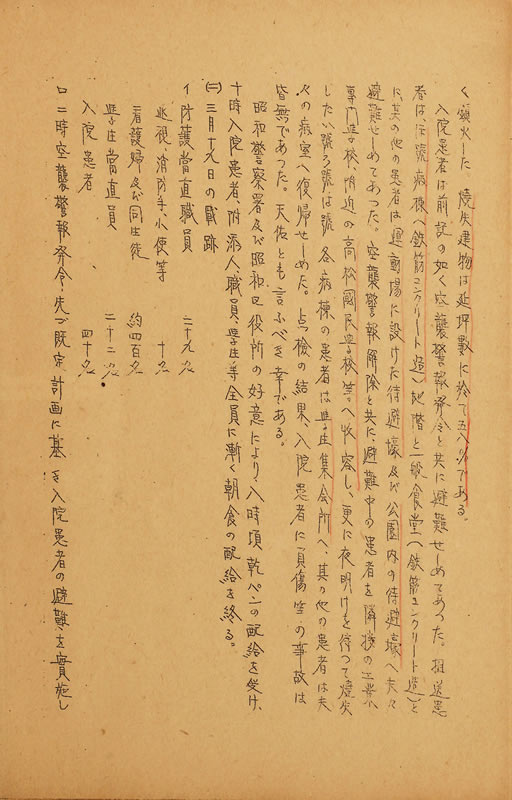 く鎮火した。燒失建物は延坪數に於て五八%である。
入院患者は前記の如く空襲警報発令と共に避難せしめてあつた。担送患
者は、ほ號病棟(鉄筋コンクリート造)地階と一般食堂(鉄筋コンクリート造)と
に、其の他の患者は運動場に設けた待避壕及び公園内の待避壕へ夫々
避難せしめてあつた。空襲警報解除と共に、避難中の患者を隣接の工業
専門学校、附近の高松國民学校等へ收容し、更に夜明けを待つて燒失
したい號ろ號は號 各病棟の患者は学生集会所へ、其の他の患者は夫
々の病室へ復帰せしめた。点檢の結果、入院患者に負傷等の事故は
皆無であつた。天佑とも言ふべき幸である。
昭和警察署及び昭和区役所の好意により、八時頃乾パンの配給を受け、
十時入院患者、附添人、職員学生等全員に漸く朝食の配給を終る。
(二)三月十九日の戰跡
イ 防護當直職員 二十九名
巡視、消防手、小使等 十名
看護婦及び同生徒 約四百名
学生當直員 二十二名
入院患者 四十名
ロ 二時空襲警報発令、先づ既定計画に基き入院患者の避難を實施し